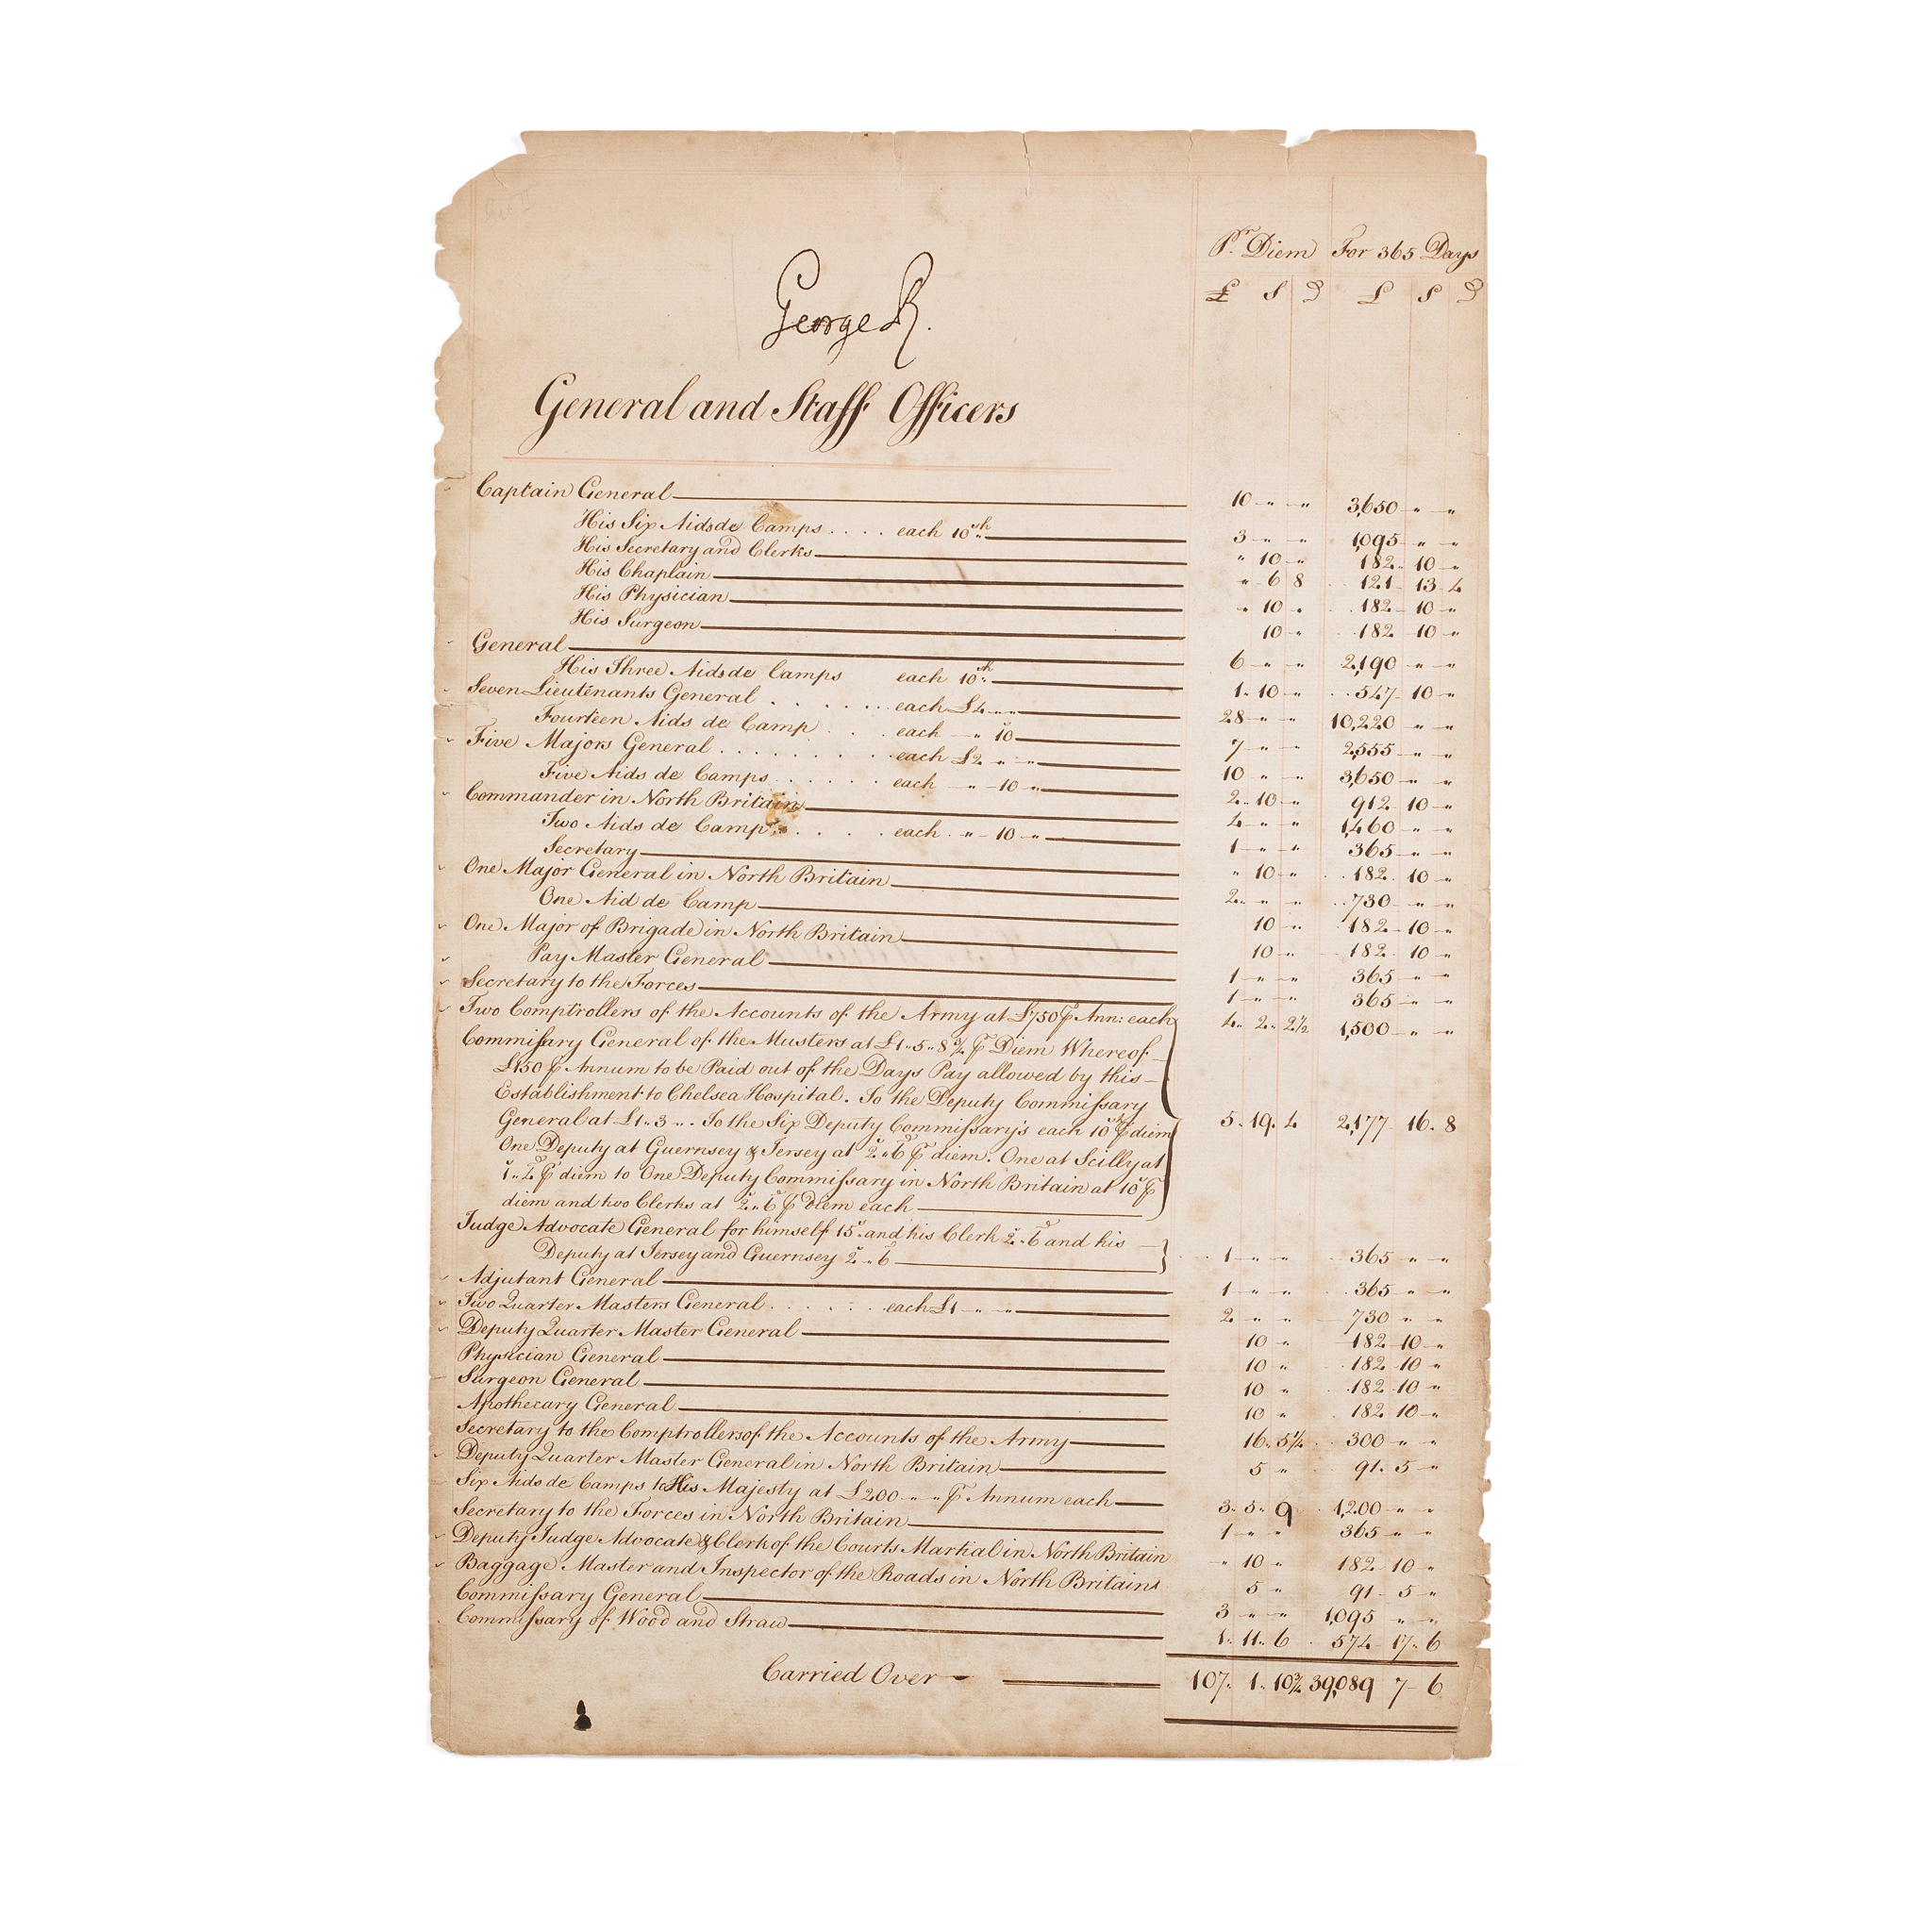 Pr. Diem For 365 Days
£ S D £ S D
George R.
General and Staff Officers
Captain General 10 " " 3,650 " "
His Six Aids de Camps .... each 10sh 3 " " 1,095 " "
His Secretary and Clerks " 10 " 182 " 10 "
His Chaplain " 6 8 121 13 4
His Physician " 10 " 182 10 "
His Surgeon 10 " 182 10 "
General 6 " " 2,190 " "
His Three Aids de Camps each 10sh 1 " 10 " 547 10 "
Seven Lieutenants General ...... each £4 " " 28 " " 10,220 " "
Fourteen Aids de Camp ... each " 10 7 " " 2,555 " "
Five Majors General ....... each £2 " " 10 " " 3,650 " "
Five Aids de Camps ...... each " 10 " 2 " 10 " 912 10 "
Commander in North Britain 4 " " 1,460 " "
Two Aids de Camp .... each " 10 " 1 " " 365 " "
Secretary " 10 " 182 10 "
One Major General in North Britain 2 " " 730 " "
One Aid de Camp 10 " 182 10 "
One Major of Brigade in North Britain 10 " 182 10 "
Pay Master General 1 " " 365 " "
Secretary to the Forces 1 " " 365 " "
Two Comptrollers of the Accounts of the Army at £750 ⅌ Ann: each 4 " 2 " 2½ 1,500 " "
Commissary General of the Musters at £1 " 5 " 8¾ ⅌ Diem Whereof
£150 ⅌ Annum to be Paid out of the Days Pay allowed by this
Establishment to Chelsea Hospital. To the Deputy Commissary
General at £1 " 3 " . To the Six Deputy Commissary's each 10sh ⅌ diem 5 " 19 " 4 2,177 16 " 8
One Deputy at Guernsey & Jersey at 2s " 6d ⅌ diem. One at Scilly at
1s " 4d ⅌ diem to One Deputy Commissary in North Britain at 10s ⅌
diem and two Clerks at 2s " 6d ⅌ Diem each
Judge Advocate General for himself 15s and his Clerk 2s " 6d and his
Deputy at Jersey and Guernsey 2s " 6 1 " " 365 " "
Adjutant General 1 " " 365 " "
Two Quarter Masters General ...... each £1 " " 2 " " 730 " "
Deputy Quarter Master General 10 " 182 10 "
Physician General 10 " 182 10 "
Surgeon General 10 " 182 10 "
Apothecary General 10 " 182 10 "
Secretary to the Comptrollers of the Accounts of the Army 16 " 5¼ 300 " "
Deputy Quarter Master General in North Britain 5 " 91 " 5 "
Six Aids de Camps to His Majesty at £200 " " ⅌ Annum each 3 " 5 " 9 1,200 " "
Secretary to the Forces in North Britain 1 " " 365 " "
Deputy Judge Advocate & Clerk of the Courts Martial in North Britain " 10 " 182 10 "
Baggage Master and Inspector of the Roads in North Britain 5 " 91 5 "
Commissary General 3 " " 1,095 " "
Commissary of Wood and Straw 1 " 11 " 6 574 17 " 6
Carried Over 107 " 1 " 10¾ 39,089 7 6